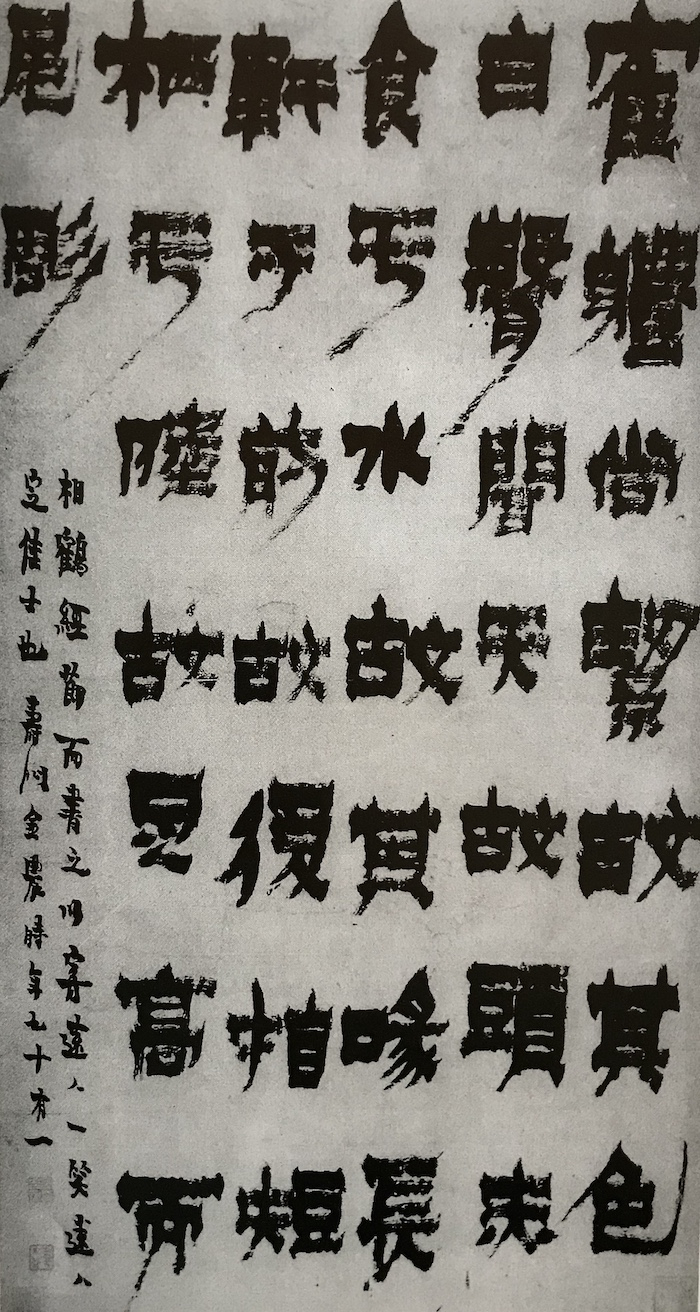 寉軆尚絜故其色
白聲聞天故頭赤
食于水故其喙長
軒于前故後指短
栖于陸故足高而
尾彫
相鶴經節而書之以寄達人一笑達人
定佳士也壽門金農時年七十有一